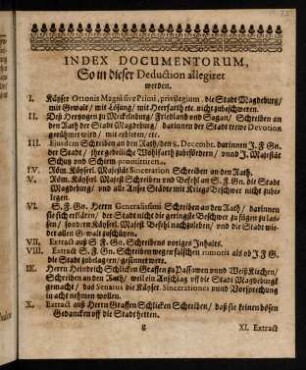 INDEX DOCUMENTORUM,
So in dieser Deduction allegiret
werden.
I. Käyser Ottonis Magni sive Primi, privilegium, die Stadt Magdeburg/
mit Gewalt/ mit Lösung/ mit Heerfarth etc. nicht zubeschweren.
II. Deß Hertzogen zu Mecklenburg/ Friedland und Sagan/ Schreiben an
den Rath der Stadt Magdeburg/ darinnen der Stadt trewe Devotion
gerühmet wird/ mit erbieten/ etc.
III. Ejusdem Schreiben an Rath/ den 8. Decembr. darinnen J. F. Gn.
der Stadt/ ihre gedeiliche Wohlfarth zubefördern/ unnd J. Majestät
Schutz und Schirm promittiren.
IV. Röm. Käyserl. Majestät Sinceration Schreiben an den Rath.
V. Röm. Käyserl. Majestt Schreiben und Befehl an S. F. Gn. die Stadt
Magdeburg/ und alle Ansee Städte mit Kriegs Beschwer nicht zube-
legen.
VI. S. F. Gn. Herrn Generalissimi Schreiben an den Rath/ darinnen
sie sich erklären/ der Stadt nicht die geringste Beschwer zu fügen zu las-
sen/ sondern Käyserl. Majest Befehl nachzuleben/ und die Stadt wie-
der allen Gewalt zuschützen.
VII. Extract auß S. F. Gn. Schreibens voriges Inhalts.
VIII. Extract S. F. Gn. Schreiben wegen falschen rumoris als ob J F G.
die Stadt zubelägern/ gesinnet weren.
IX. Herrn Heinrich Schlicken Graffen zu Passawen unnd Weiß Kirchen/
Schreiben an den Rath/ weil ein Anschlag uff die Stadt Magdeburgk
gemacht/ das Senatus die Käyser. Sincerationes unnd Vorsprechung
in acht nehmen wollen.
X. Extract auß Herrn Graffen Schlicken Schreiben/ daß sie keinen bösen
Gedancken uff die Stadt hetten.
g XI. Extract